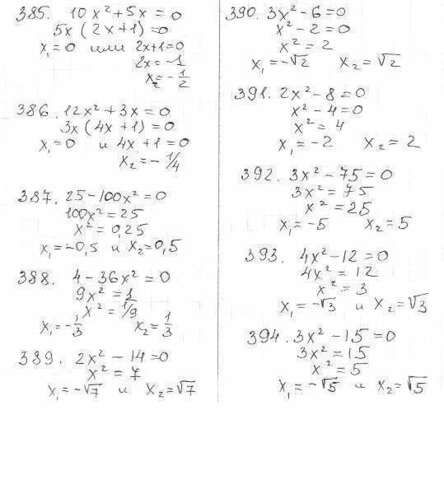 385. 10x² + 5x = 0
5x (2x+1) = 0
x₁ = 0 или 2x+1 = 0
2x = -1
x₂ = - 1/2
386. 12x² + 3x = 0
3x (4x + 1) = 0
x₁ = 0 и 4x + 1 = 0
x₂ = - 1/4
387. 25 - 100x² = 0
100x² = 25
x² = 0,25
x₁ = -0,5 и x₂ = 0,5
388. 4 - 36x² = 0
9x² = 1
x² = 1/9
x₁ = - 1/3 x₂ = 1/3
389. 2x² - 14 = 0
x² = 7
x₁ = -√7 и x₂ = √7
390. 3x² - 6 = 0
x² - 2 = 0
x² = 2
x₁ = -√2 x₂ = √2
391. 2x² - 8 = 0
x² - 4 = 0
x² = 4
x₁ = -2 x₂ = 2
392. 3x² - 75 = 0
3x² = 75
x² = 25
x₁ = -5 x₂ = 5
393. 4x² - 12 = 0
4x² = 12
x² = 3
x₁ = -√3 и x₂ = √3
394. 3x² - 15 = 0
3x² = 15
x² = 5
x₁ = -√5 и x₂ = √5